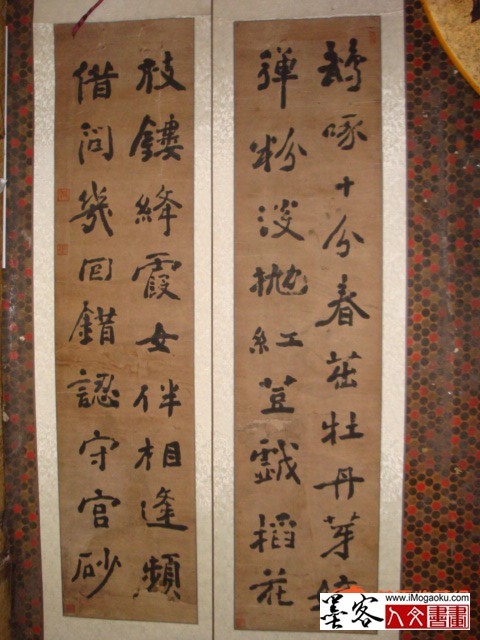 啄十分春茁牡丹芽
彈粉淡拋紅荳戲搯花
枝鏤絳霞女伴相逢頻
借問幾回錯認守官砂
www.iMogaoku.com
墨客人文書畫